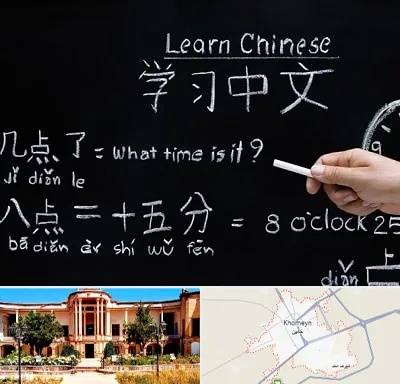 Learn Chinese
学习中文
几点了 = what time is it?
jǐ diǎn le
八点二十五分 = 8 o'clock 25
bā diǎn èr shí wǔ fēn
diǎn
Khomeyn
خمین